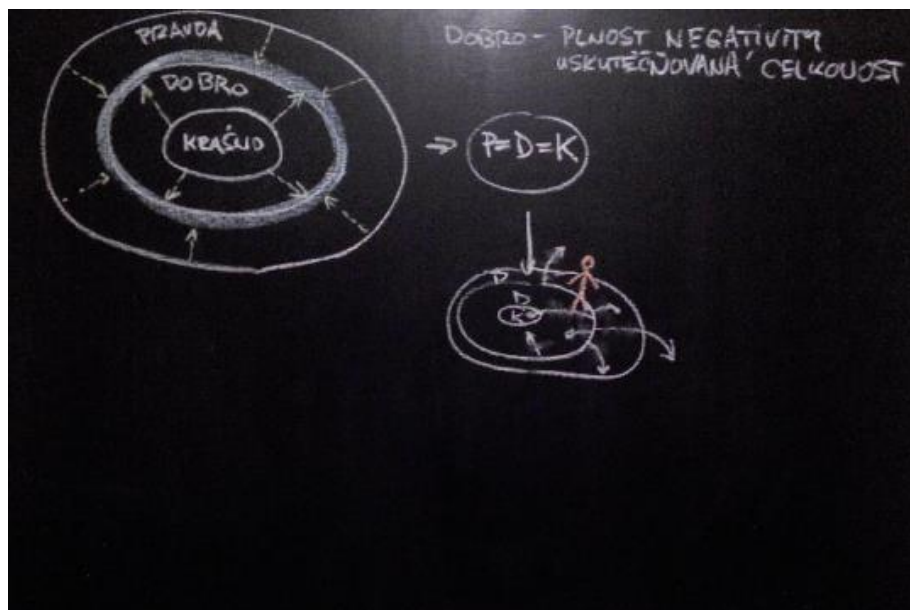 PRAVDA
DOBRO
KRÁSNO
DOBRO - PLNOST NEGATIVITY
USKUTEČŇOVANÁ CELKOVOST
P=D=K
D
D
K